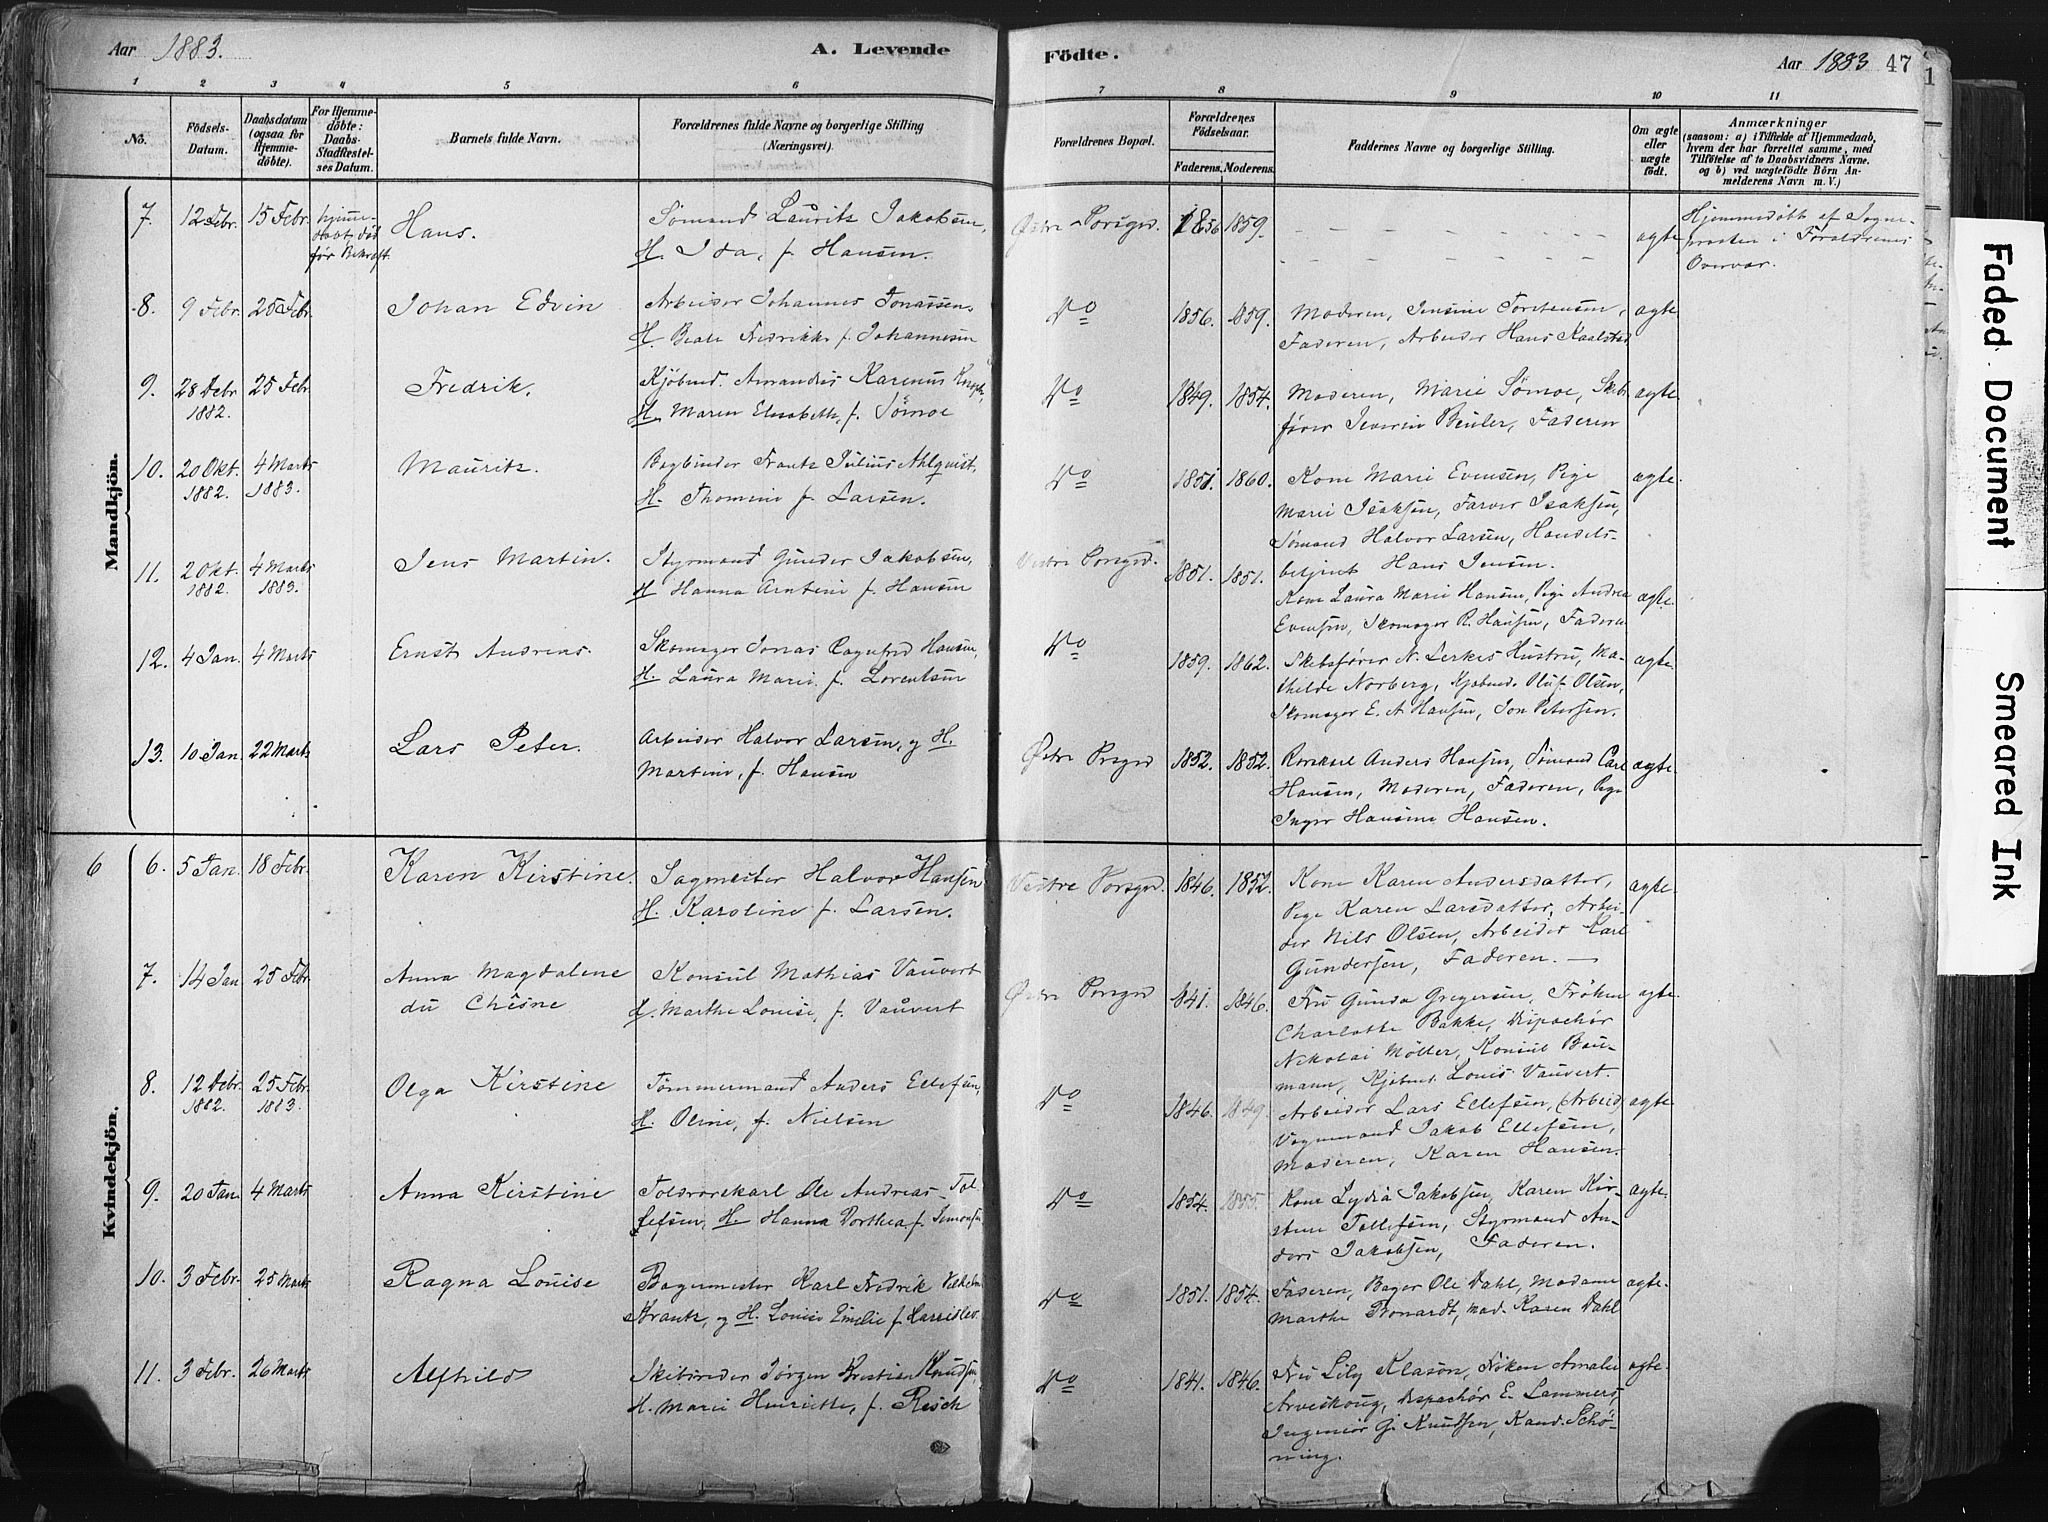 Aar 1883.
A. Levende
Födte.
Aar 1883
47
1 2 3 4 5 6 7 8 9 10 11
No.
Födsels-Datum.
Daabsdatum (ogsaa for Hjemmedöbte).
For Hjemmedöbte: Daabs-Stadfæstelses Datum.
Barnets fulde Navn.
Forældrenes fulde Navne og borgerlige Stilling (Næringsvei).
Forældrenes Bopæl.
Forældrenes Födselsaar.
Faderens. Moderens.
Faddernes Navne og borgerlige Stilling.
Om ægte eller uægte födt.
Anmærkninger
(saasom: a) i Tilfælde af Hjemmedaab,
hvem der har forrettet samme, med
Tilföielse af to Daabsvidners Navne.
og b) ved uægtefödte Börn An-
melderens Navn m. V.)
Mandkjön.
7. 12 Febr. 15 Febr. hjemmedøbt, død før Bekræft. Hans. Sømand Lauritz Jakobsen,
H. Ida, f. Hansen.
Østre Porsgrd. 1856 1859. ægte
Hjemmedöbt af Sogne-
præsten i Forældrenes
Overvær.
8. 9 Febr. 25 Febr. Johan Edvin Arbeider Johannes Jonassen
H. Beate Fredrikke f. Johannesen
Do 1856. 1859. Moderen, Jensine Torstensen,
Faderen, Arbeider Hans Kaalstad ægte
9. 28 Debr. 1882. 25 Febr. Fredrik. Kjøbmd. Amandus Karenus
H. Maren Elisabeth, f. Sømoe
Do 1849. 1854. Moderen, Marie Sømoe, Skibs-
fører Severin Beuler, Faderen ægte
10. 20 Okt. 1882. 4 Marts 1883. Mauritz. Bogbinder Frantz Julius Ahlqvist,
H. Thomine f. Larsen.
Do 1851. 1860. Kone Marie Evensen, Pige
Marie Isaksen, Farver Isaksen,
Sømand Halvor Larsen, Handels-
betjent Hans Jensen. ægte
11. 2 Okt. 1882. 4 Marts 1883. Jens Martin. Styrmand Gunder Jakobsen,
H Hanna Arntine f. Hansen
Vestre Porsgrd. 1851. 1851. Kone Laura Marie Hansen, Pige Andrea
Evensen, Skomager R. Hansen, Faderen ægte
12. 4 Jan. 4 Marts Ernst Andreas. Skomager Jonas Hansen,
H. Laura Marie f. Lorentsen
Do 1859. 1862. Skibsfører N. Hustru, Ma-
thilde Norberg, Kjøbmd. Oluf Olsen,
Skomager E. A Hansen, Jon Petersen. ægte
13. 10 Jan. 22 Marts Lars Peter. Arbeider Halvor Larsen, og H.
Martine, f. Hansen
Østre Porsgrd 1852. 1852. Rorskarl Anders Hansen, Sømand Carl
Hansen, Moderen, Faderen, Pige
Inger Hansine Hansen. ægte
Kvindekjön.
6 6. 5 Jan. 18 Febr. Karen Kirstine. Sagmester Halvor Hansen
H. Karoline f. Larsen.
Vestre Porsgrd. 1846. 1852. Kone Karen Andersdatter,
Pige Karen Larsdatter, Arbei-
der Nils Olsen, Arbeider Karl
Gundersen, Faderen. ægte
7. 14 Jan 25 Febr. Anna Magdalene
du Chésne Konsul Mathias Vauvert
H. Marthe Louise, f. Vauvert
Østre Porsgrd 1841. 1846. Fru Gunda Gregersen, Frøken
Charlotte Bakke, Dispachør
Nikolai Möller, Konsul Bau-
mann, Kjøbmd. Louis Vauvert. ægte
8. 12 Debr. 1882. 25 Febr. 1883. Olga Kirstine Tømmermand Anders Ellefsen,
H. Oline, f. Nielsen
Do 1846. 1849. Arbeider Lars Ellefsen, (Arbeid)
Vognmand Jakob Ellefsen,
Moderen, Karen Hansen. ægte
9. 20 Jan. 4 Marts Anna Kirstine Toldrorskarl Ole Andreas Tol-
lefsen, H. Hanna Dorthea, f. Simonsen
Do 1854. 1855. Kone Lydia Jakobsen, Karen Kir-
stine Tollefsen, Styrmand An-
ders Jakobsen, Faderen. ægte
10. 3 Febr. 25 Marts Ragna Louise Bagermester Karl Fredrik
Krantz, og H. Louise Emilie f.
Do 1851. 1854. Faderen, Bager Ole Dahl, Madame
Marthe Bonardt, Mad. Karen Dahl ægte
11. 3 Febr. 26 Marts Alfhild Skibsreder Jørgen Kristian Knudsen,
H. Marie Henriette, f. Resch
Do 1841. 1846. Fru Lily Klasön, Frøken Amalie
Arveskoug, Dispachør E. Lammers,
Ingeniör G. Knudsen, Kand. Schø-
ning. ægte
Faded Document
Smeared Ink